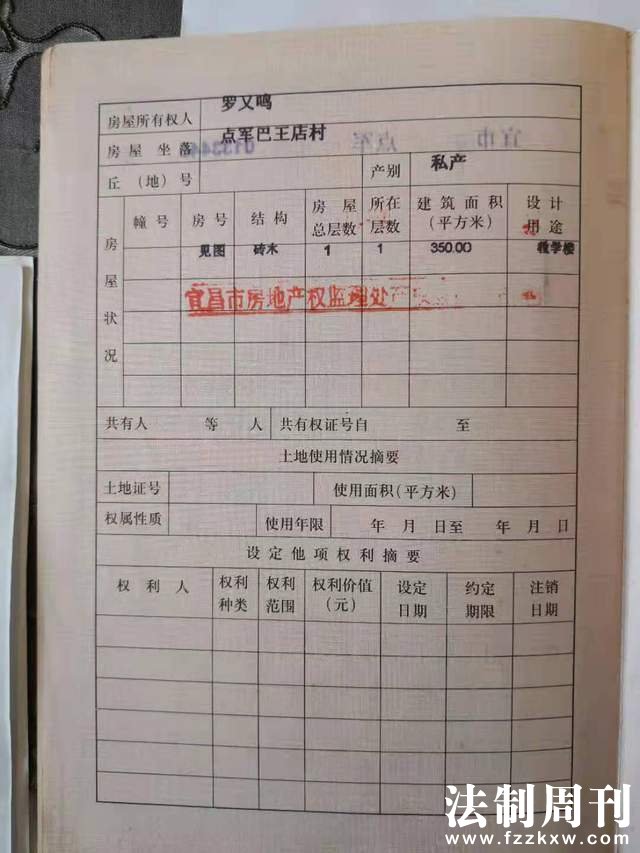 房屋所有权人 罗又鸣
房屋 坐落 点军巴王店村
丘 (地) 号 产别 私产
房屋状况 幢号 房号 结构 房屋总层数 所在层数 建筑面积(平方米) 设计用途
见图 砖木 1 1 350.00 教学楼
宜昌市房地产权监理处
共有人 等 人 共有权证号自 至
土地使用情况摘要
土地证号 使用面积(平方米)
权属性质 使用年限 年 月 日至 年 月 日
设定他项权利摘要
权利人 权利种类 权利范围 权利价值(元) 设定日期 约定期限 注销日期
法制周刊
www.fzzkxw.com